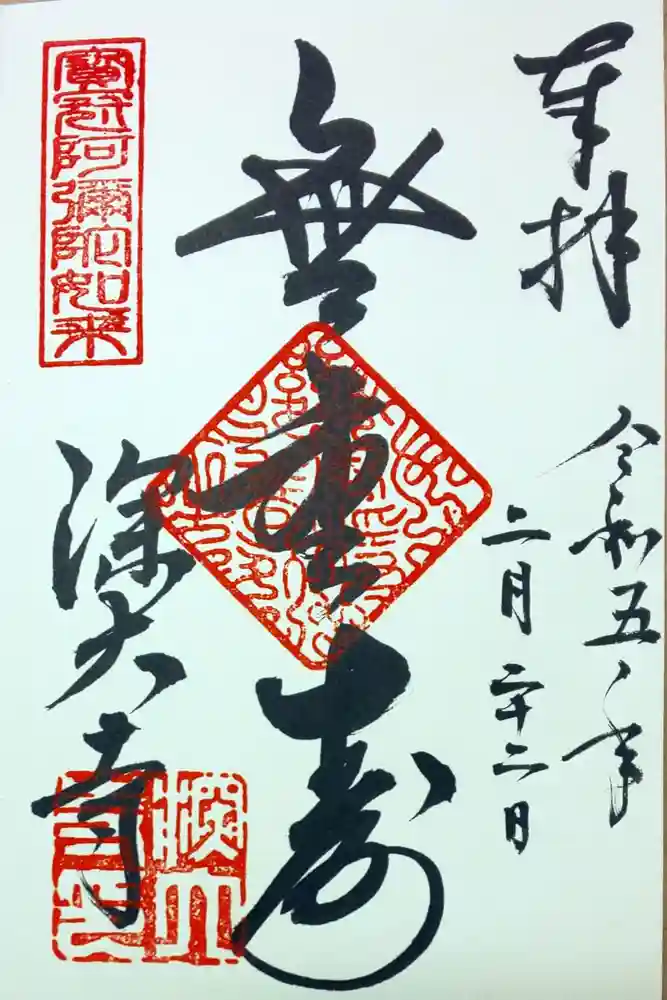 奉拝
令和五年
二月二十二日
無量寿
寶冠阿彌陀如来
深大寺